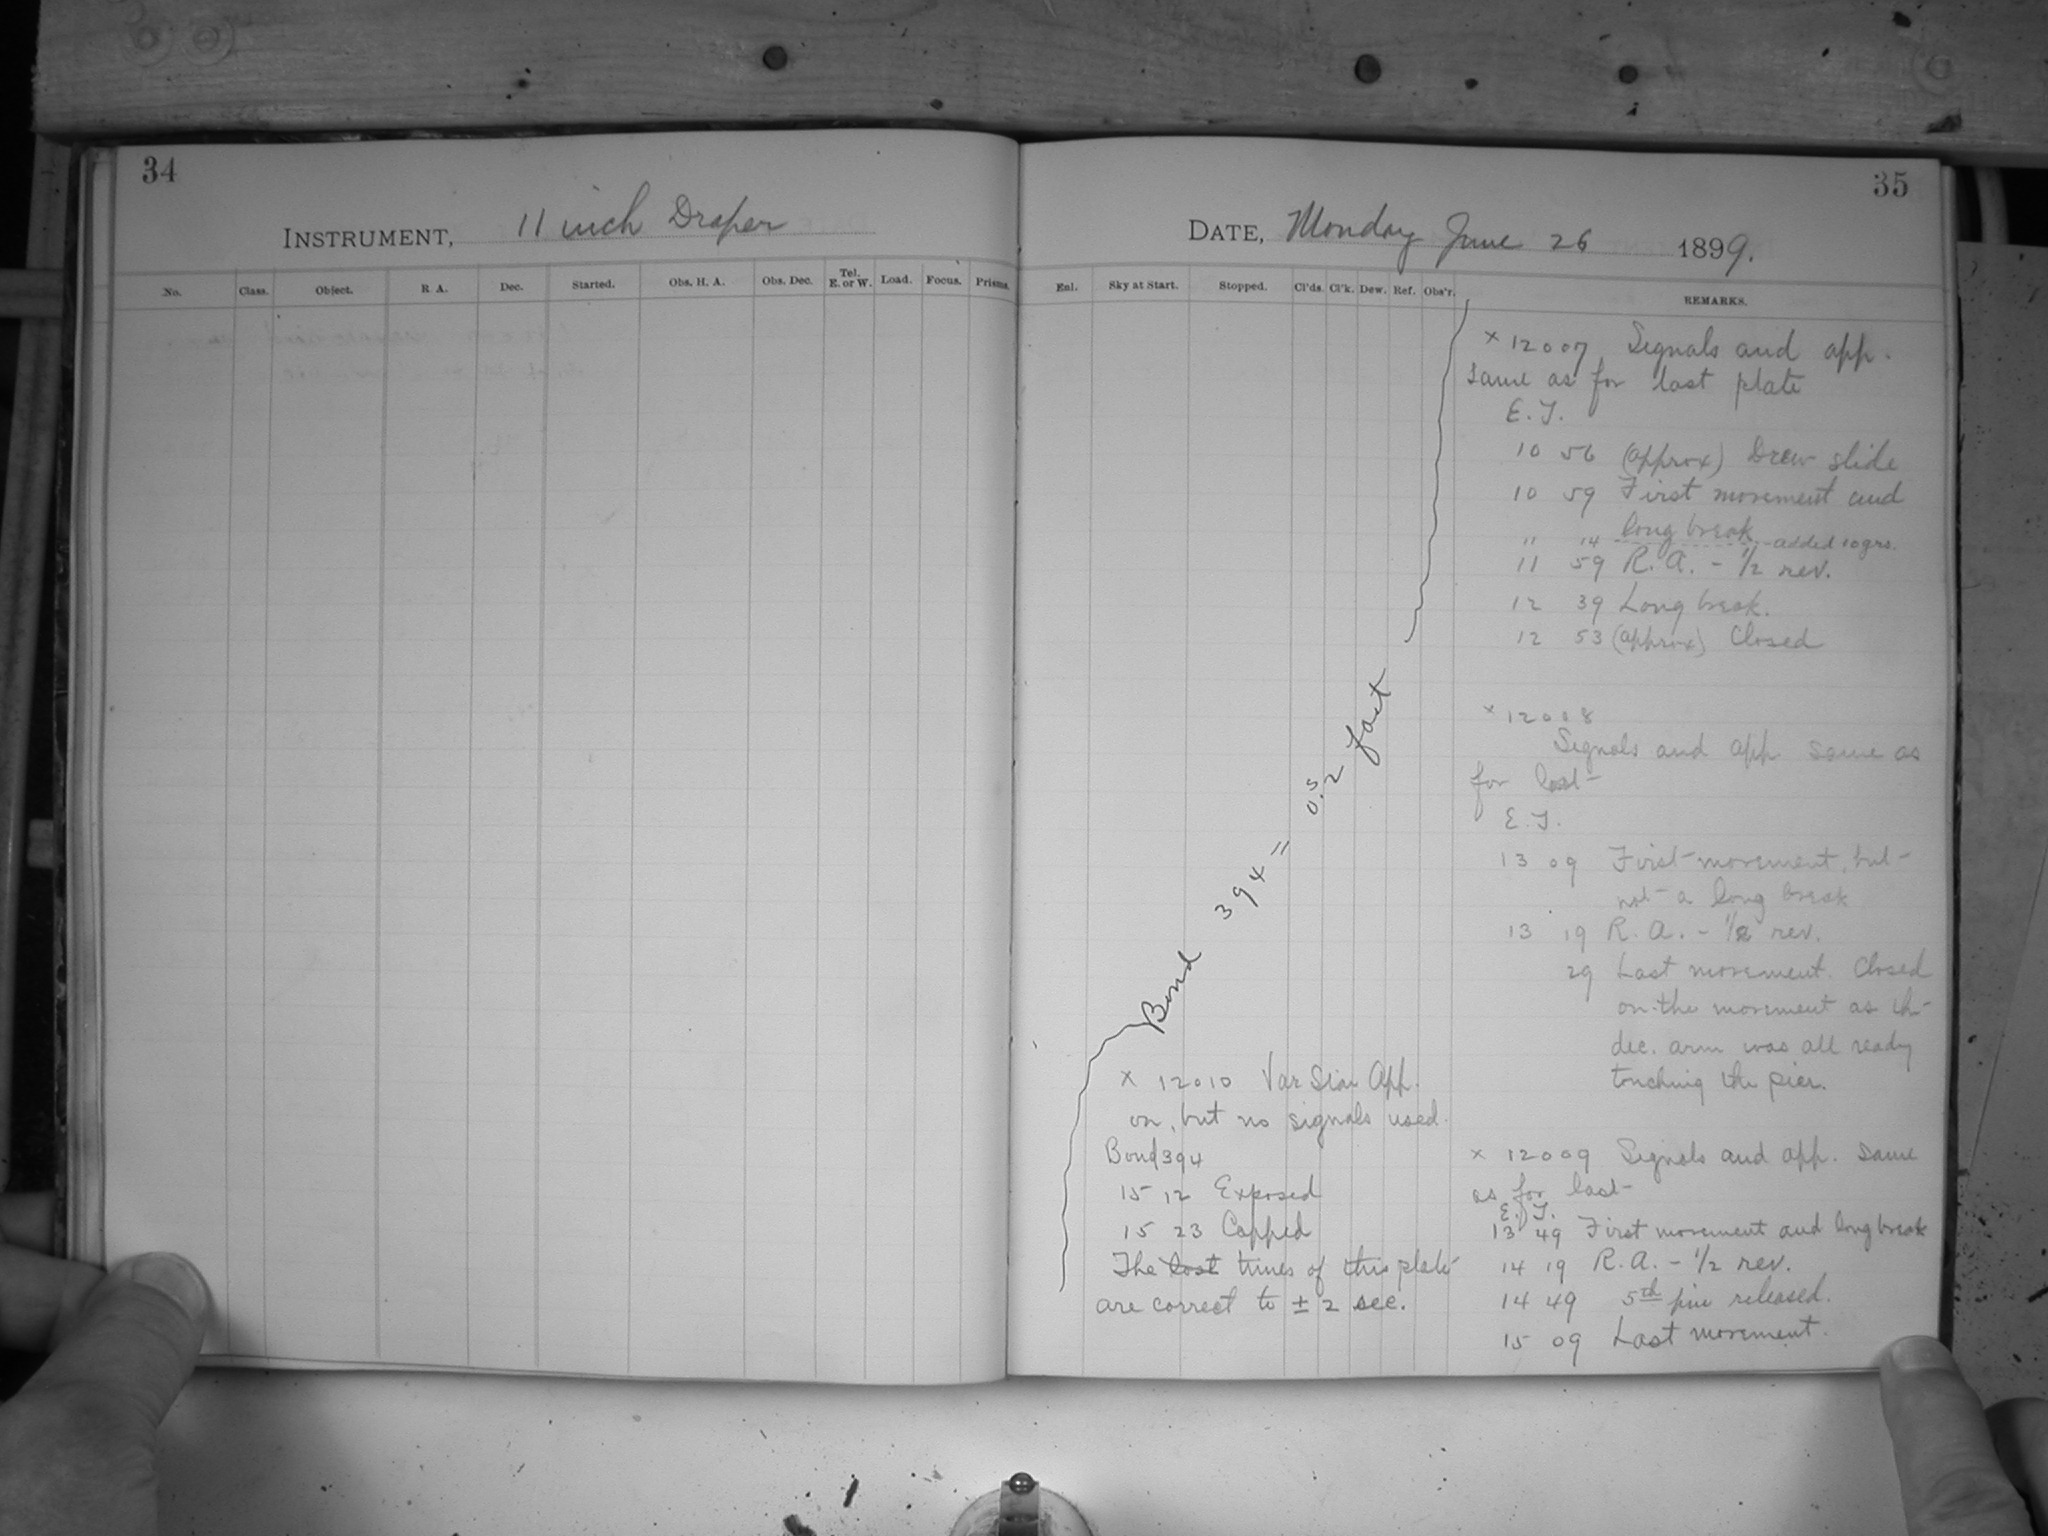 34
INSTRUMENT, 11 inch Draper
No. Class. Object. R. A. Dec. Started. Obs. H. A. Obs. Dec. Tel. E. or W. Load. Focus. Prisms.
35
DATE, Monday June 26 1899.
Enl. Sky at Start. Stopped. Cl'ds. Cl'k. Dew. Ref. Obs'r. REMARKS.
x 12007 Signals and app.
same as for last plate
E. T.
10 56 (approx) Drew slide
10 59 First movement and
long break
" 14 added 10 grs.
11 59 R. A. - 1/2 rev.
12 39 Long break.
12 53 (approx) Closed
x 12008
Signals and app same as
for last
E. T.
13 09 First movement, but
not a long break
13 19 R. A. - 1/2 rev.
29 Last movement. Closed
on the movement as the
dec. arm was all ready
touching the pier.
x 12009 Signals and app. same
as for last
E. T.
13 49 First movement and long break
14 19 R. A. - 1/2 rev.
14 49 5th pin released.
15 09 Last movement.
Bond 394 = 0.s2 fast
x 12010 Var Star App.
on, but no signals used.
Bond 394
15 12 Exposed
15 23 Capped
The last times of this plate
are correct to ± 2 sec.